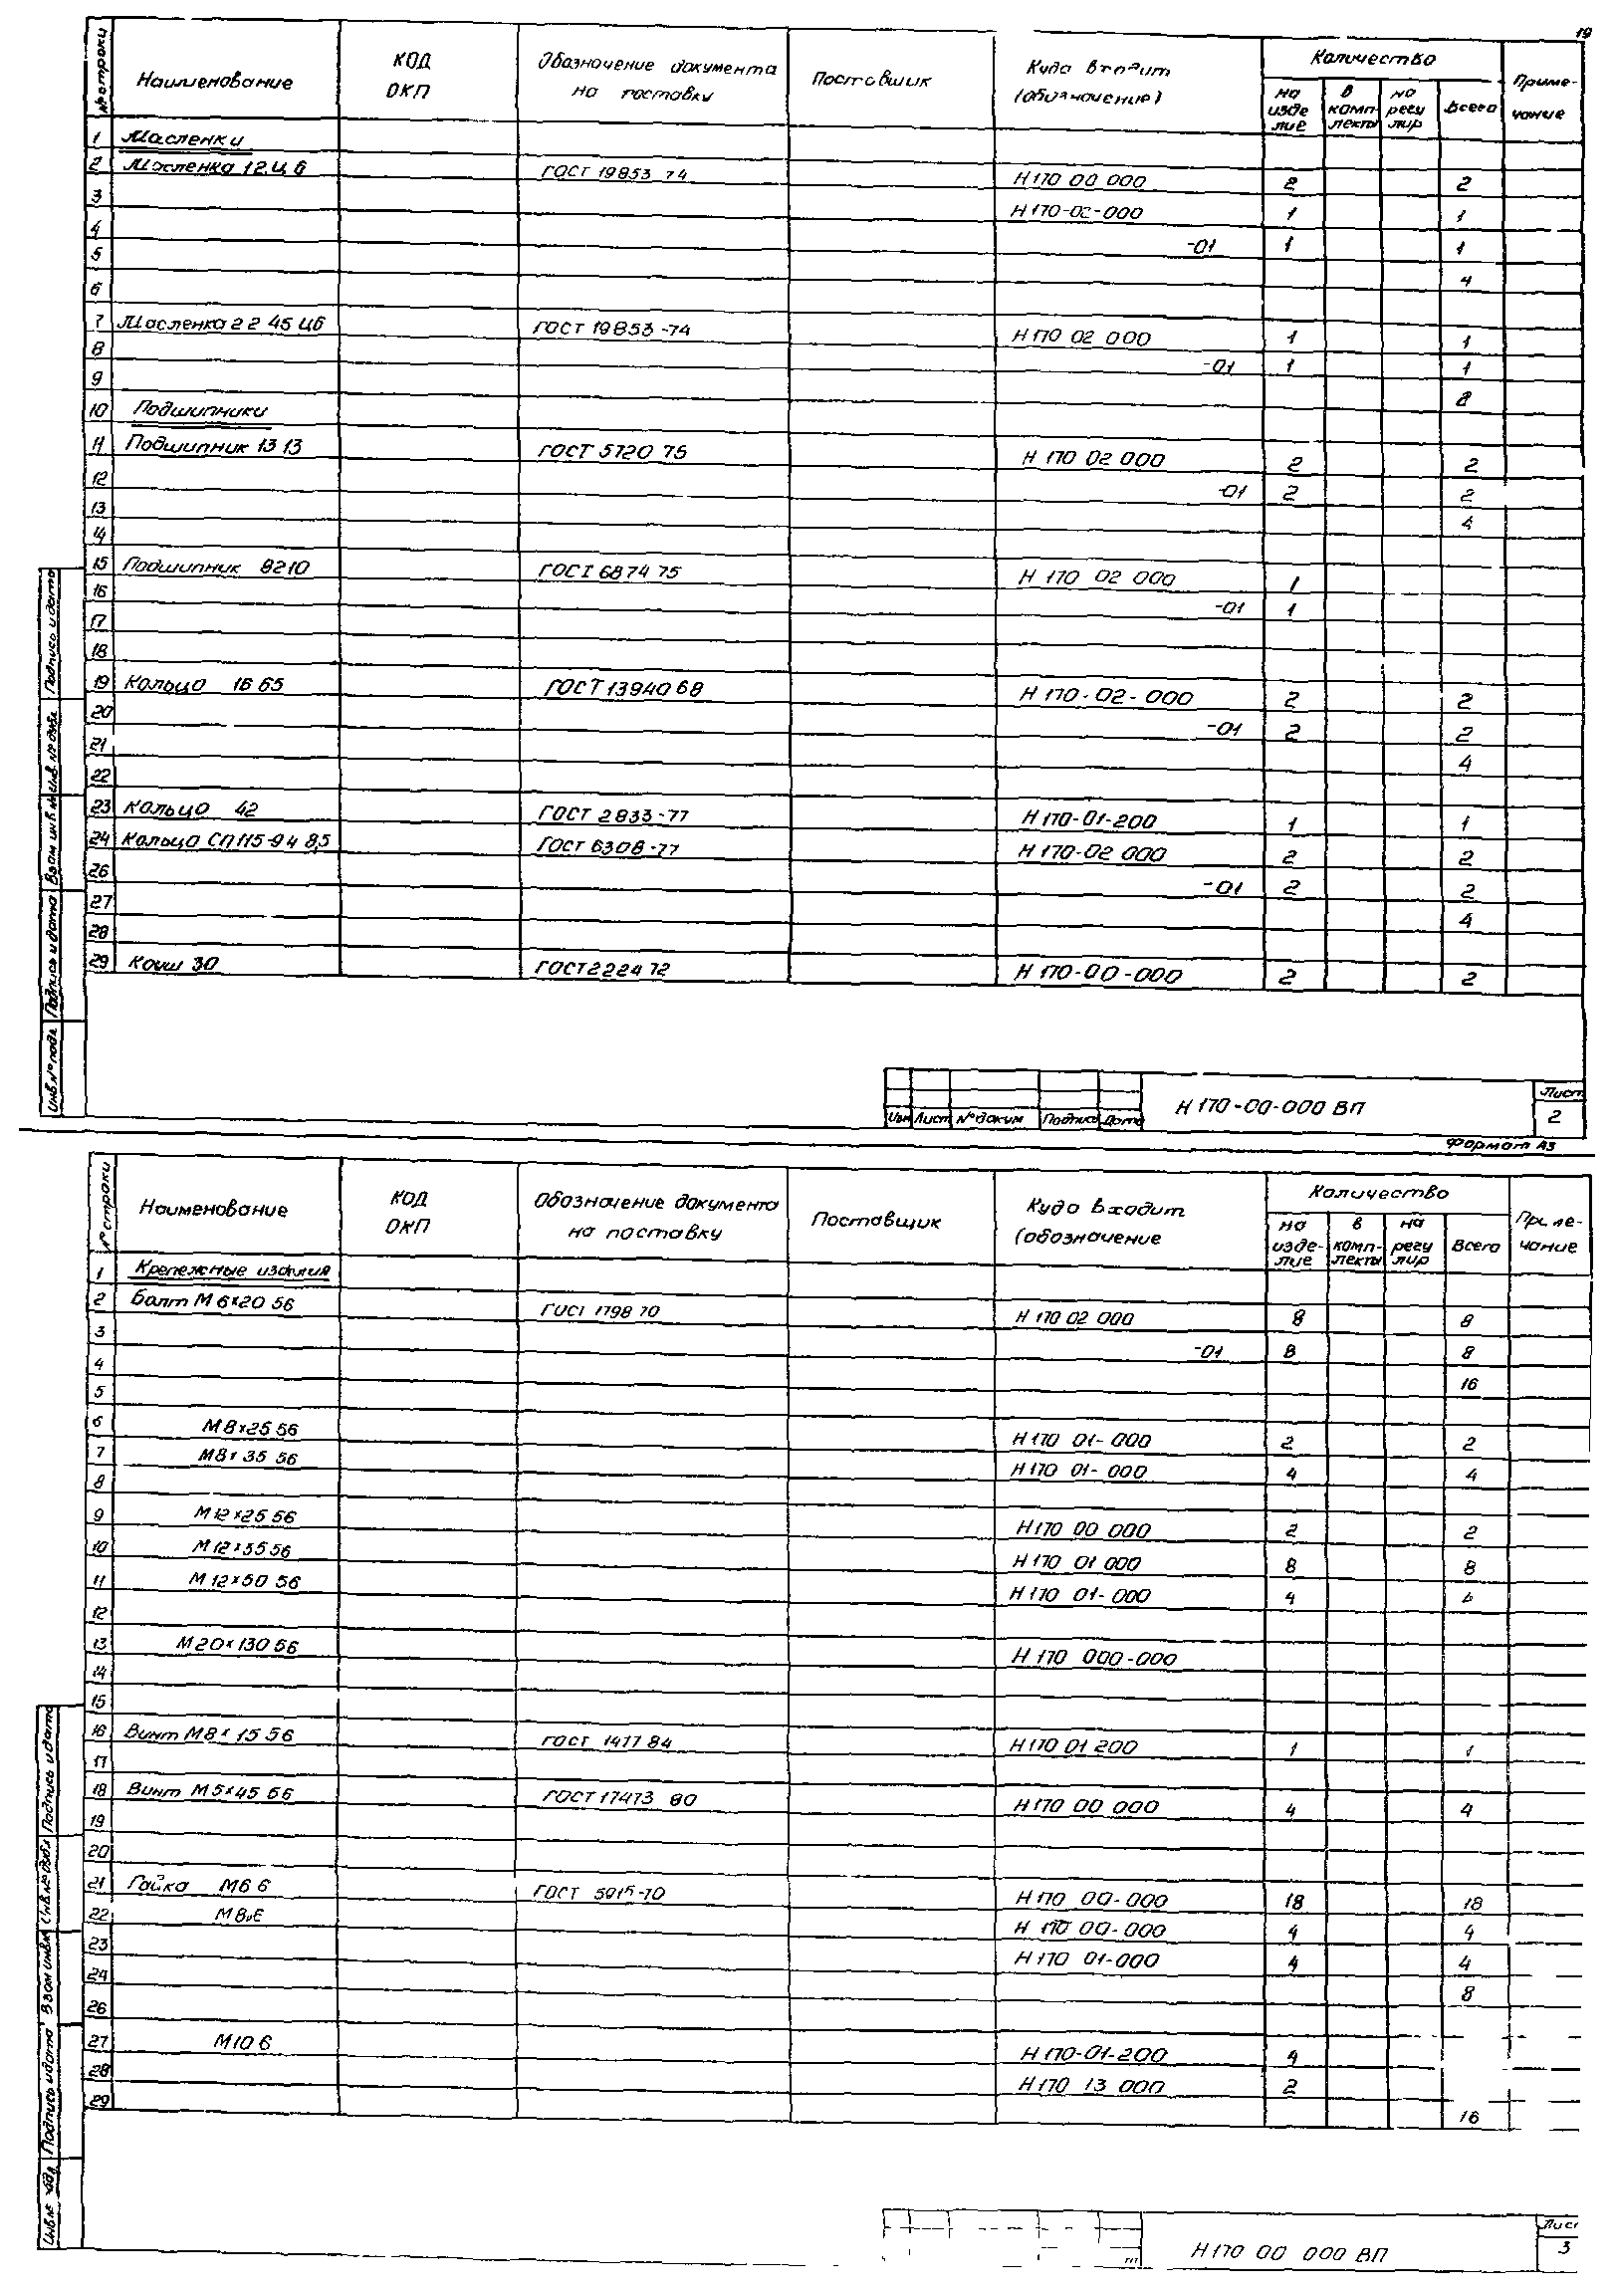 19
№ строки Наименование КОД ОКП Обозначение документа на поставку Поставщик Куда входит (обозначение) Количество на изделие в комплекты на регулир Всего Примечание
1 Масленки
2 Масленка 12.Ц6 ГОСТ 19853 74 Н 170 00 000 2 2
3 Н 170-02-000 1 1
4 -01 1 1
5 4
6
7 Масленка 2 2 45 Ц6 ГОСТ 19853-74 Н 170 02 000 1 1
8 -01 1 1
9 2
10 Подшипники
11 Подшипник 13 13 ГОСТ 5720 75 Н 170 02 000 2 2
12 -01 2 2
13 4
14
15 Подшипник 8210 ГОСТ 6874 75 Н 170 02 000 1
16 -01 1
17
18
19 Кольцо 1Б 65 ГОСТ 13940 68 Н 170-02-000 2 2
20 -01 2 2
21 4
22
23 Кольцо 42 ГОСТ 2833-77 Н 170-01-200 1 1
24 Кольцо СП 115-94 8,5 ГОСТ 6308-77 Н 170-02 000 2 2
26 -01 2 2
27 4
28
29 Коуш 30 ГОСТ 2224 72 Н 170-00-000 2 2
Инв.№ подл Подпись и дата Взам инв.№ Инв.№ дубл. Подпись и дата
Изм Лист № докум Подпись Дата Н 170-00-000 ВП Лист 2
Формат А3
№ строки Наименование КОД ОКП Обозначение документа на поставку Поставщик Куда входит (обозначение Количество на изделие в комплекты на регулир Всего чание
1 Крепежные изделия
2 Болт М 6×20 56 ГОСТ 1798 70 Н 170 02 000 8 8
3 -01 8 8
4 16
5
6 М 8×25 56 Н 170 01-000 2 2
7 М8× 35 56 Н 170 01-000 4 4
8
9 М 12×25 56 Н 170 00 000 2 2
10 М 12×35 56 Н 170 01 000 8 8
11 М 12×50 56 Н 170 01-000 4
12
13 М 20×130 56 Н 170 000-000
14
15
16 Винт М8× 15 56 ГОСТ 1477 84 Н 170 01 200 1 1
17
18 Винт М 5×45 56 ГОСТ 17473 80 Н 170 00 000 4 4
19
20
21 Гайка М6 6 ГОСТ 5915-70 Н 170 00-000 18 18
22 М 8.6 Н 170 00-000 4 4
23 Н 170 01-000 4 4
24 8
26
27 М10 6 Н 170-01-200 4
28 Н 170 13 000 2
29 16
Подпись и дата Взам инв.№ Инв.№ дубл Подпись и дата
Н 170 00 000 ВП Лист 3